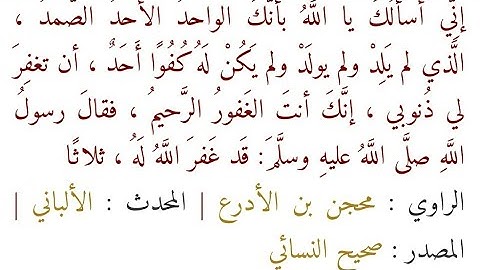 إنِّي أسألُكَ يا اللَّهُ بأنَّكَ الواحدُ الأحدُ الصَّمدُ ،
الَّذي لم يَلِدْ ولم يولَدْ ولم يَكُنْ لَهُ كُفُوًا أَحَدٌ ، أن تغفِرَ
لي ذُنوبي ، إنَّكَ أنتَ الغَفورُ الرَّحيمُ ، فقالَ رسولُ
اللَّهِ صلَّى اللَّهُ عليهِ وسلَّمَ: قَد غَفرَ اللَّهُ لَهُ ، ثلاثًا
الراوي : محجن بن الأدرع | المحدث : الألباني |
المصدر : صحيح النسائي